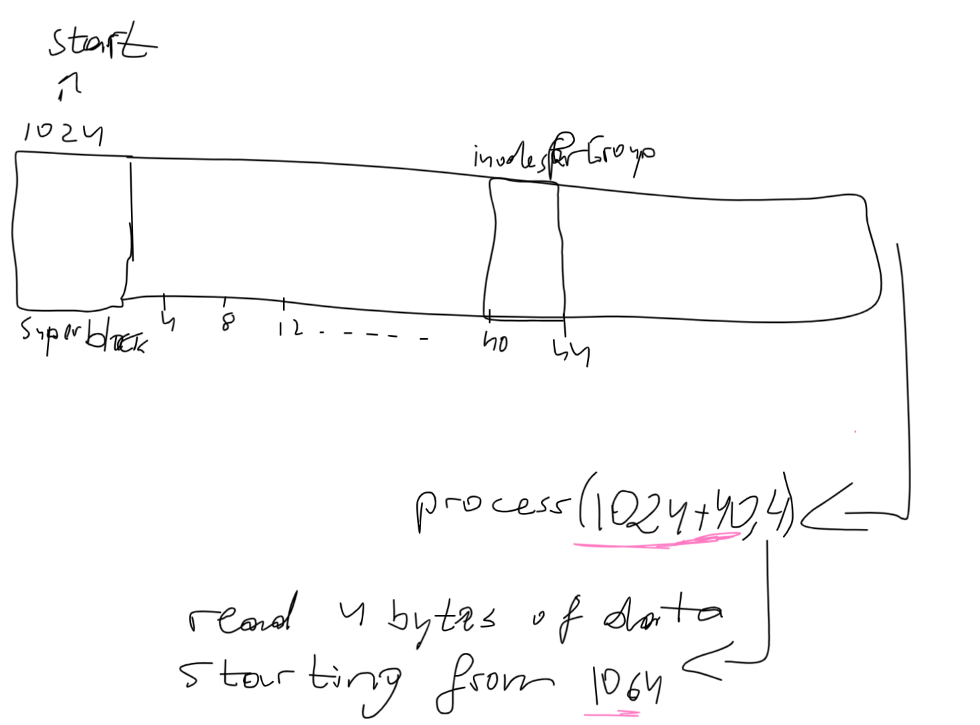 start
1024
inodesPerGroup
superblock
4 8 12 - - - - - 40 44
process(1024+40,4)
read 4 bytes of data
starting from 1064